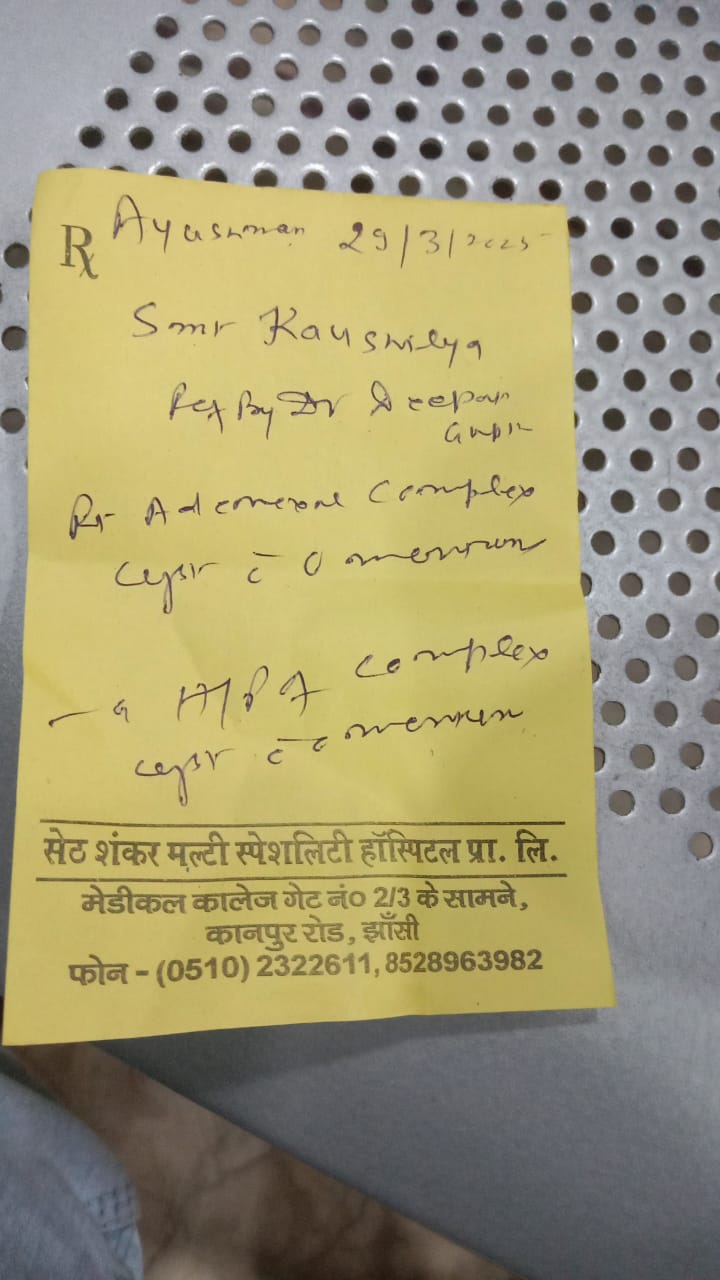 Rx Ayushman 29/3/2025
Smt Kaushilya
Ref By Dr Deepak
Gupta
Rt Adenexal Complex
cyst c̄ O
- a H/P of complex
cyst c̄
सेठ शंकर मल्टी स्पेशलिटी हॉस्पिटल प्रा. लि.
मेडीकल कालेज गेट नं० 2/3 के सामने,
कानपुर रोड, झाँसी
फोन - (0510) 2322611, 8528963982